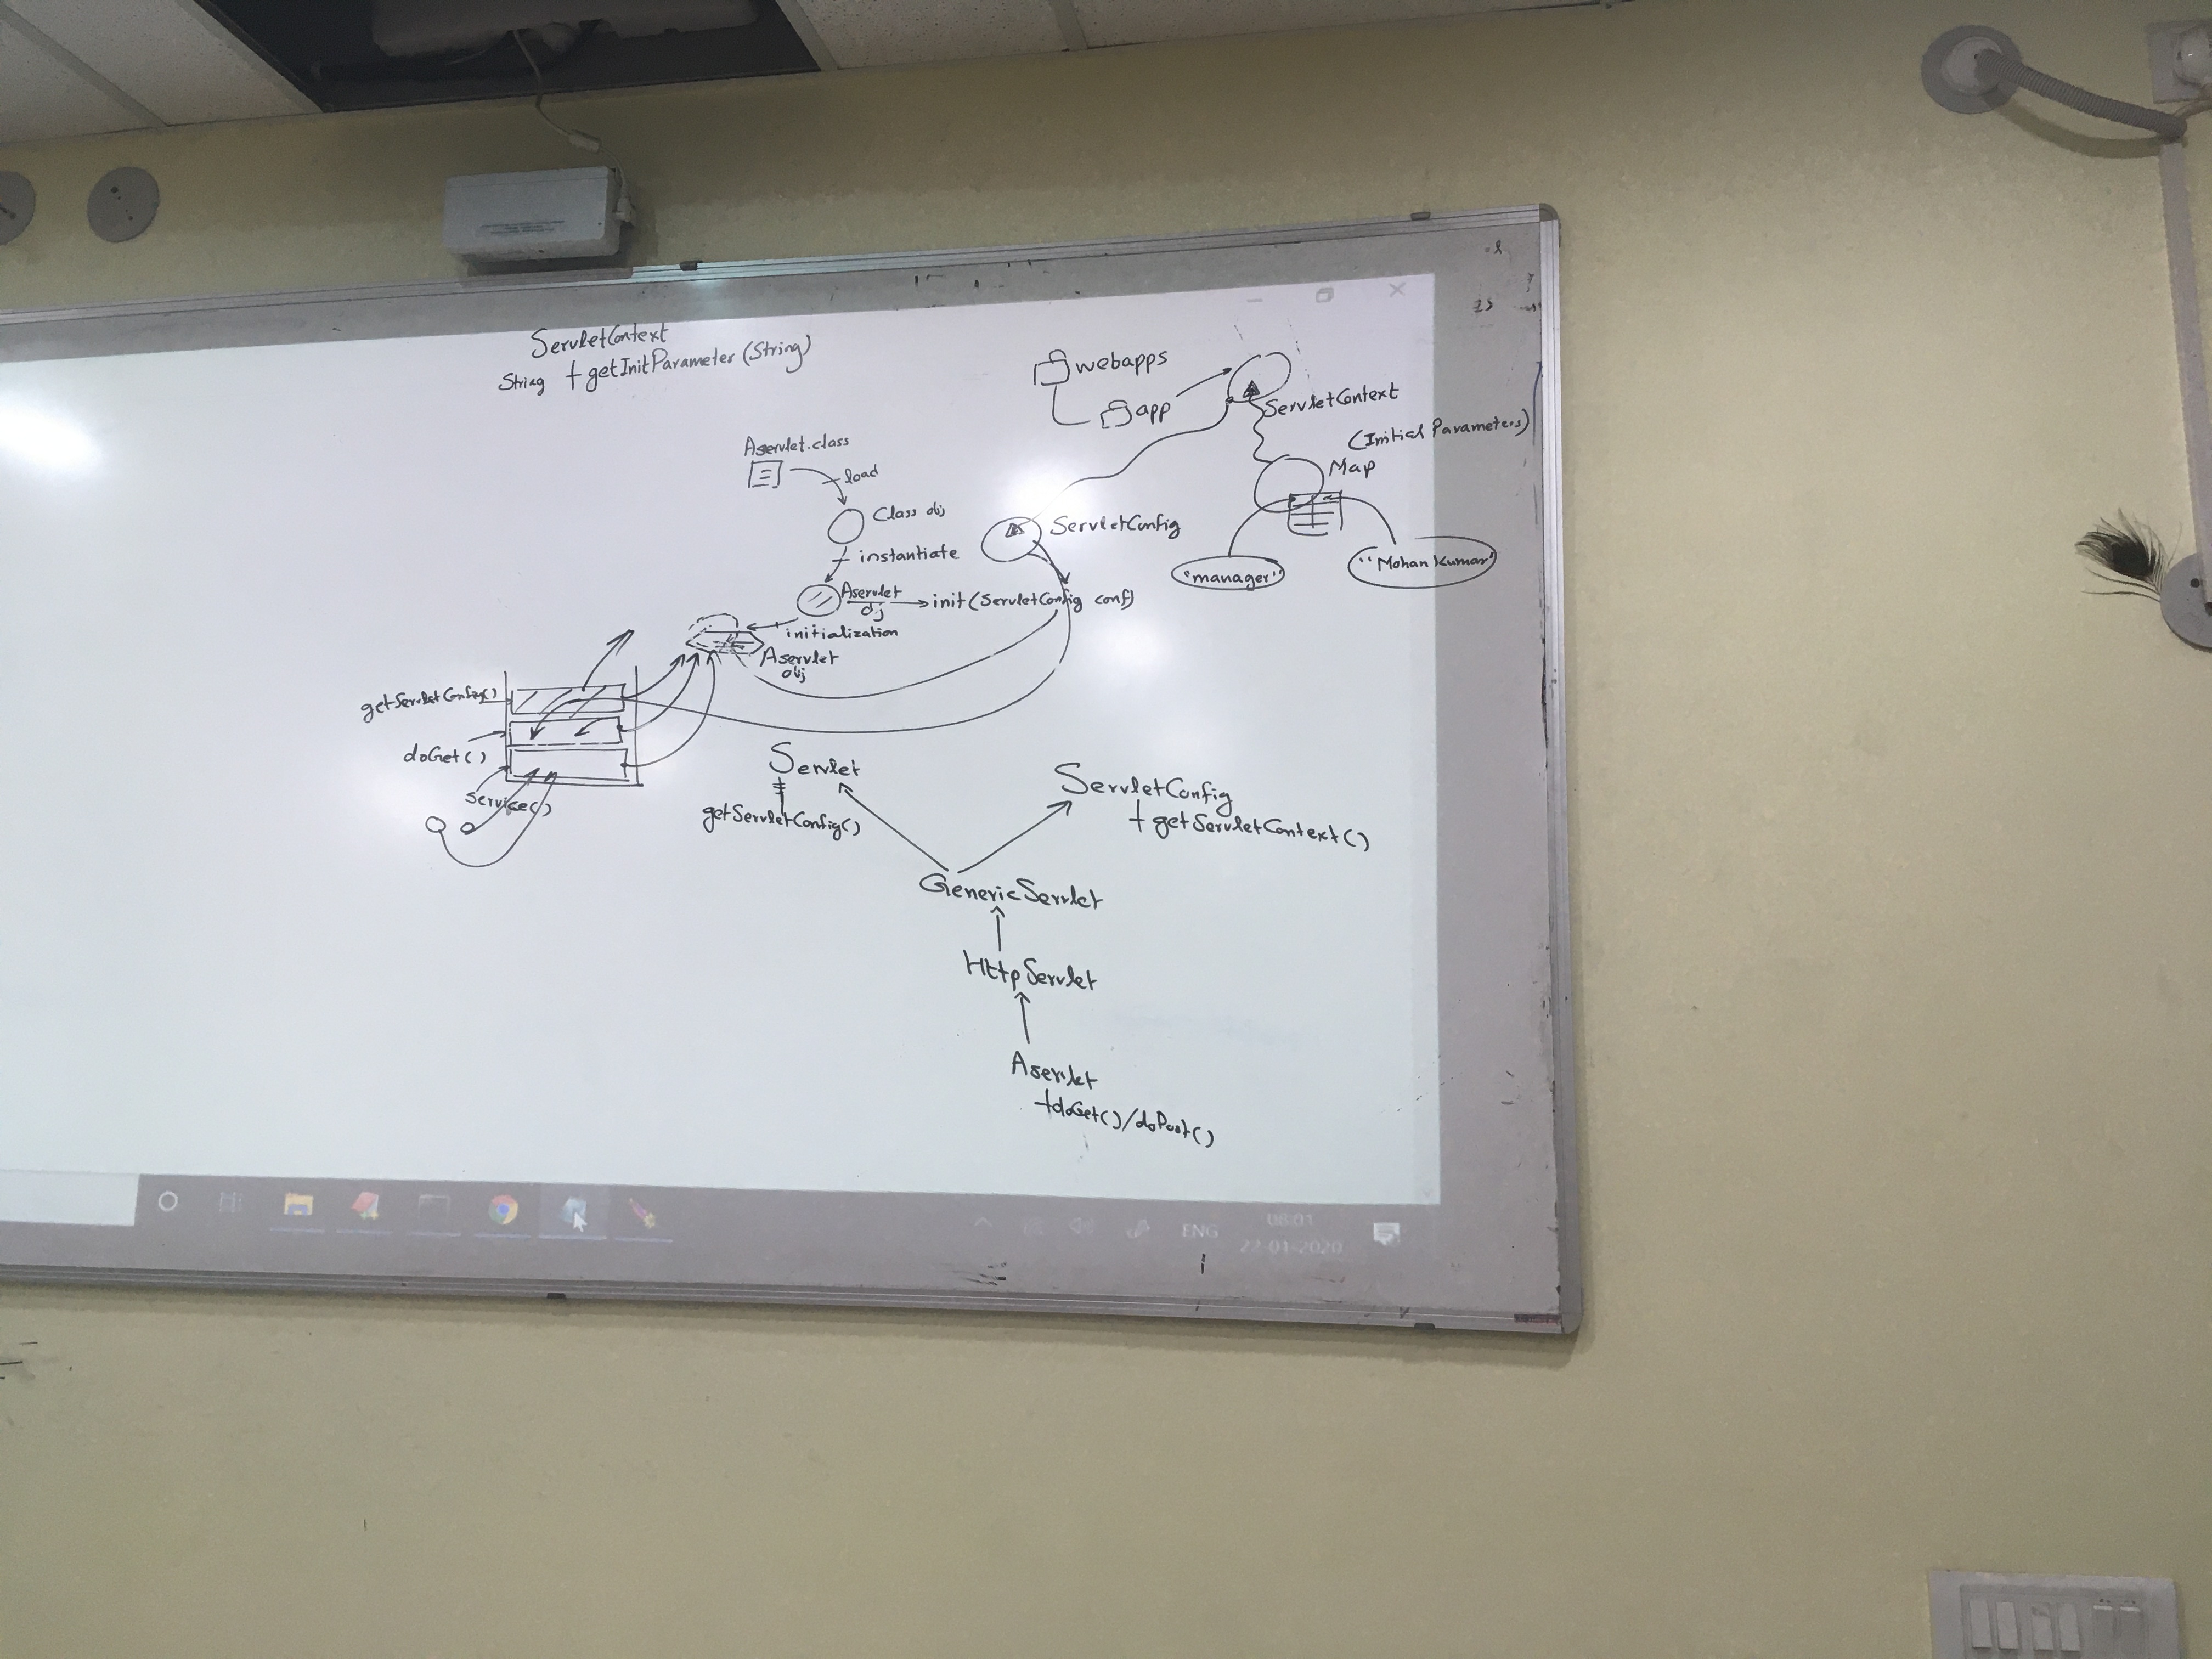 ServletContext
String + getInitParameter (String)
webapps
app
ServletContext
(Initial Parameters)
Map
"manager"
"Mohan Kumar"
Aservlet.class
load
Class obj
instantiate
ServletConfig
Aservlet
obj
init (ServletConfig conf)
initialization
Aservlet
obj
getServletConfig()
doGet()
service()
Servlet
getServletConfig()
ServletConfig
+ getServletContext()
GenericServlet
HttpServlet
Aservlet
+doGet()/doPost()
ENG
08:01
22-01-2020